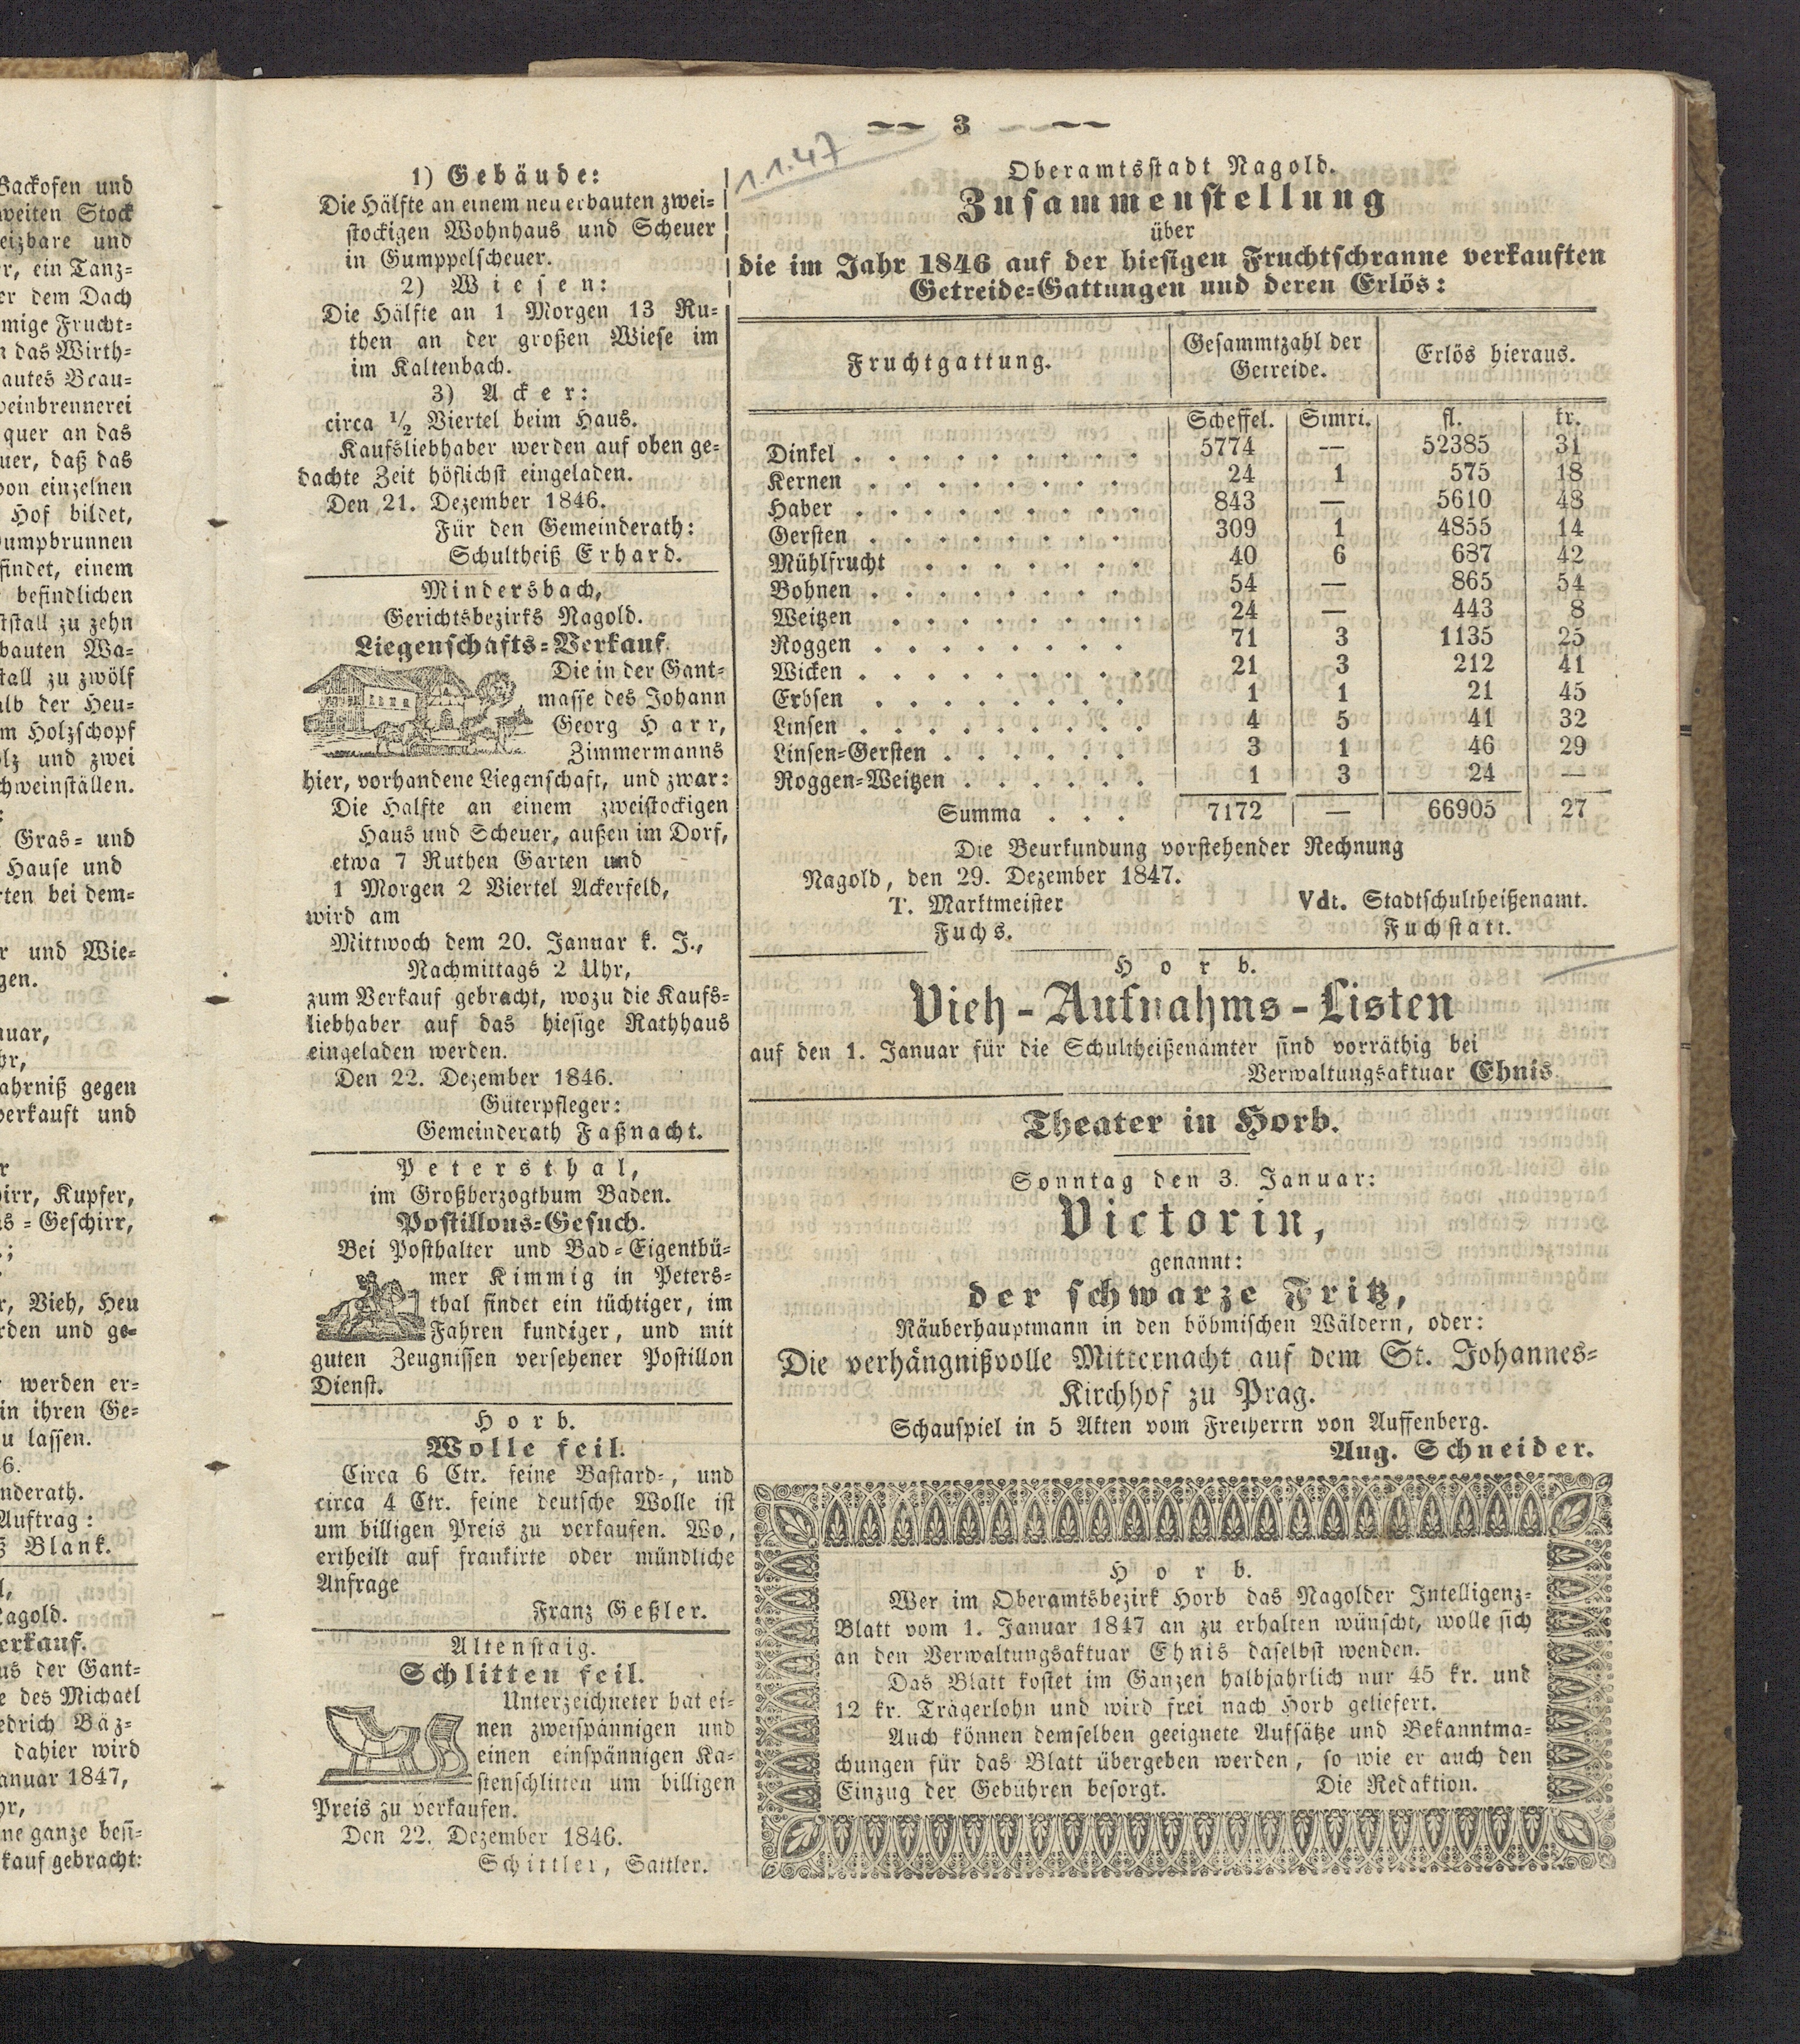 3
1.1.47
Backofen und
weiten Stock
eizbare und
r, ein Tanz-
er dem Dach
mige Frucht-
n das Wirth-
autes Brau-
weinbrennerei
quer an das
uer, daß das
von einzelnen
Hof bildet,
umpbrunnen
findet, einem
befindlichen
tstall zu zehn
bauten Wa-
tall zu zwölf
alb der Heu-
m Holzschopf
olz und zwei
chweinställen.
Gras- und
Hause und
rten bei dem-
r und Wie-
gen.
nuar,
hr,
ahrniß gegen
verkauft und
irr, Kupfer,
s-Geschirr,
r, Vieh, Heu
rden und ge-
werden er-
in ihren Ge-
u lassen.
6.
nderath.
Auftrag:
ß Blank.
l,
Nagold.
erkauf.
us der Gant-
e des Michael
edrich Bäz-
dahier wird
anuar 1847,
hr,
ne ganze besi-
kauf gebracht:
1) Gebäude:
Die Hälfte an einem neu erbauten zwei-
stockigen Wohnhaus und Scheuer
in Gumppelscheuer.
2) Wiesen:
Die Hälfte an 1 Morgen 13 Ru-
then an der großen Wiese im
im Kaltenbach.
3) Acker:
circa 1/2 Viertel beim Haus.
Kaufsliebhaber werden auf oben ge-
dachte Zeit höflichst eingeladen.
Den 21. Dezember 1846.
Für den Gemeinderath:
Schultheiß Erhard.
Mindersbach,
Gerichtsbezirks Nagold.
Liegenschafts-Verkauf.
Die in der Gant-
masse des Johann
Georg Harr,
Zimmermanns
hier, vorhandene Liegenschaft, und zwar:
Die Halfte an einem zweistockigen
Haus und Scheuer, außen im Dorf,
etwa 7 Ruthen Garten und
1 Morgen 2 Viertel Ackerfeld,
wird am
Mittwoch dem 20. Januar k. J.,
Nachmittags 2 Uhr,
zum Verkauf gebracht, wozu die Kaufs-
liebhaber auf das hiesige Rathhaus
eingeladen werden.
Den 22. Dezember 1846.
Güterpfleger:
Gemeinderath Faßnacht.
Petersthal,
im Großherzogthum Baden.
Postillons-Gesuch.
Bei Posthalter und Bad-Eigenthü-
mer Kimmig in Peters-
thal findet ein tüchtiger, im
Fahren kundiger, und mit
guten Zeugnissen versehener Postillon
Dienst.
Horb.
Wolle feil.
Circa 6 Ctr. feine Bastard-, und
circa 4 Ctr. feine deutsche Wolle ist
um billigen Preis zu verkaufen. Wo,
ertheilt auf frankirte oder mündliche
Anfrage
Franz Geßler.
Altenstaig.
Schlitten feil.
Unterzeichneter hat ei-
nen zweispännigen und
einen einspännigen Ka-
stenschlitten um billigen
Preis zu verkaufen.
Den 22. Dezember 1846.
Schittler, Sattler.
Oberamtsstadt Nagold.
Zusammenstellung
über
die im Jahr 1846 auf der hiesigen Fruchtschranne verkauften
Getreide-Gattungen und deren Erlös:
Fruchtgattung. Gesammtzahl der Getreide. Erlös hieraus.
Scheffel. Simri. fl. kr.
Dinkel . . . . . . . . . 5774 — 52385 31
Kernen . . . . . . . . 24 1 575 18
Haber . . . . . . . . . 843 — 5610 48
Gersten . . . . . . . . 309 1 4855 14
Mühlfrucht . . . . . . . 40 6 687 42
Bohnen . . . . . . . . 54 — 865 54
Weitzen . . . . . . . . 24 — 443 8
Roggen . . . . . . . . 71 3 1135 25
Wicken . . . . . . . . . 21 3 212 41
Erbsen . . . . . . . . 1 1 21 45
Linsen . . . . . . . . . 4 5 41 32
Linsen-Gersten . . . . . . 3 1 46 29
Roggen-Weitzen . . . . . . 1 3 24 —
Summa . . . 7172 — 66905 27
Die Beurkundung vorstehender Rechnung
Nagold, den 29. Dezember 1847.
T. Marktmeister Vdt. Stadtschultheißenamt.
Fuchs. Fuchstatt.
Horb.
Vieh-Aufnahms-Listen
auf den 1. Januar für die Schultheißenämter sind vorräthig bei
Verwaltungsaktuar Ehnis
Theater in Horb.
Sonntag den 3. Januar:
Victorin,
genannt:
der schwarze Fritz,
Räuberhauptmann in den böhmischen Wäldern, oder:
Die verhängnißvolle Mitternacht auf dem St. Johannes-
Kirchhof zu Prag.
Schauspiel in 5 Akten vom Freiherrn von Auffenberg.
Aug. Schneider.
Horb.
Wer im Oberamtsbezirk Horb das Nagolder Intelligenz-
Blatt vom 1. Januar 1847 an zu erhalten wünscht, wolle sich
an den Verwaltungsaktuar Ehnis daselbst wenden.
Das Blatt kostet im Ganzen halbjahrlich nur 45 kr. und
12 kr. Trägerlohn und wird frei nach Horb geliefert.
Auch können demselben geeignete Aufsätze und Bekanntma-
chungen für das Blatt übergeben werden, so wie er auch den
Einzug der Gebühren besorgt. Die Redaktion.